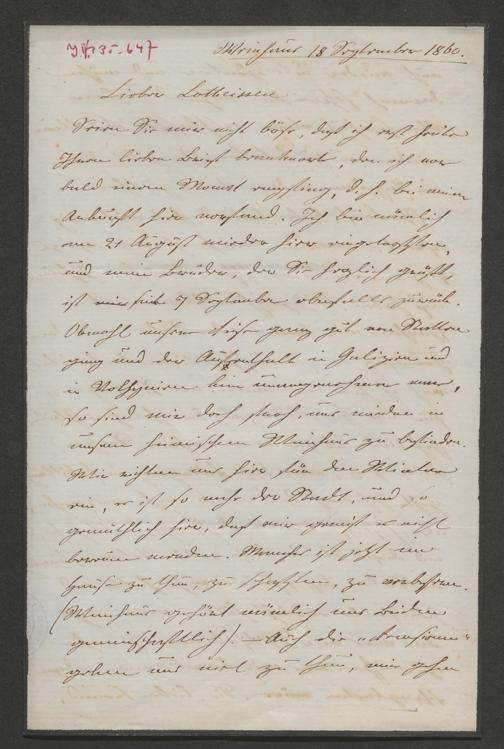 Weinhaus 18 September 1860.
Lieber Lotheissen
Seien Sie mir nicht böse, daß ich erst heute
Ihren lieben Brief beantworte, den ich vor
bald einem Monat empfing, d. h. bei meiner
Ankunft hier vorfand. Ich bin nämlich
am 21 August wieder hier eingetroffen,
und mein Bruder, der Sie herzlich grüßt,
ist seit 7 September ebenfalls zurück.
Obwohl unsere Reise ganz gut von Statten
ging und der Aufenthalt in Galizien und
in Volhynien kein unangenehmer war,
so sind wir doch froh, uns wieder in
unserm heimischen Weinhaus zu befinden.
Wir richten uns hier für den Winter
ein, es ist so nahe der Stadt, und so
gemüthlich hier, daß wir gewiß es nicht
bereuen werden. Mancher ist jetzt im
Hause zu thun, zu schaffen, zu verbessern.
(Weinhaus gehört nämlich uns Beiden
gemeinschaftlich). – Auch die
geben uns viel zu thun, wir gehen